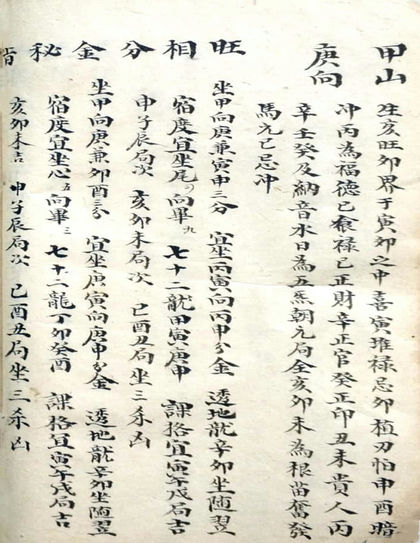 甲山
庚向
生亥旺卯界于寅卯之中喜寅堆禄忌卯植刃怕申酉暗
冲丙為福德巳食禄巳正財辛正官癸正印丑未貴人丙
辛壬癸及納音水日為五炁朝元局全亥卯未為根苗奮發
馬元巳忌冲
旺相分金秘旨
坐甲向庚兼寅申三分 宜坐丙寅向丙申分金 透地龍辛卯坐随翌
宿度宜坐尾向畢九 七十二龍甲寅庚申 課格宜寅午戌局吉
申子辰局次 亥卯未局次 巳酉丑局坐三杀凶
坐甲向庚兼卯酉三分 宜坐庚寅向庚申分金 透地龍辛卯坐随翌
宿度宜坐心五向畢三 七十二龍丁卯癸酉 課格宜寅午戌局吉
亥卯未吉 申子辰局次 巳酉丑局坐三杀凶